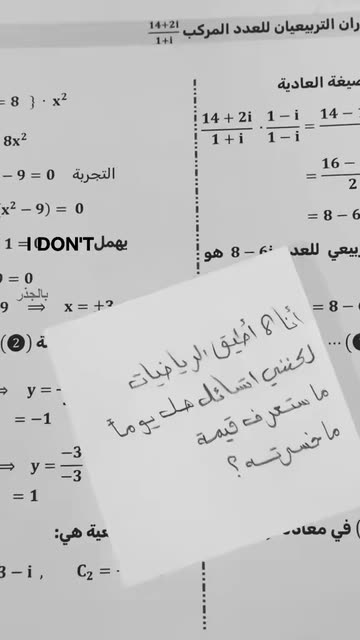 ران التربيعيان للعدد المركب 14+2i/1+i
صيغة العادية
14 + 2i/1 + i · 1 − i/1 − i = 14 −
= 16 −/2
= 8 − 6
يعي للعدد 8 − 6i هو
= 8 − 6
= 8 } · x²
8x²
− 9 = 0 التجربة
(x² − 9) = 0
يهمل 1 =
I DON'T
= 0
9 بالجذر ⇒ x = ±3
ة (2)
⇒ y = −
= −1
⇒ y = −3/−3
= 1
عية هي:
3 − i , C₂ = −
في معاد
أنا لا أطيق الرياضيات
لكنني اتسائل هل يوماً
ما ستعرف قيمة
ما خسرته ؟